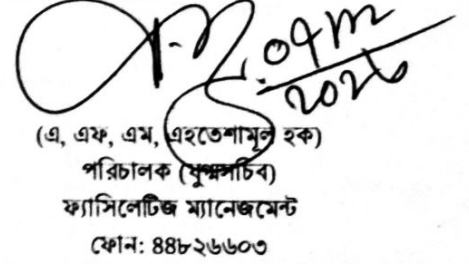 (এ, এফ, এম, এহতেশামুল হক)
পরিচালক (যুগ্মসচিব)
ফ্যাসিলেটিজ ম্যানেজমেন্ট
ফোন: ৪৪৮২৬৬০৩